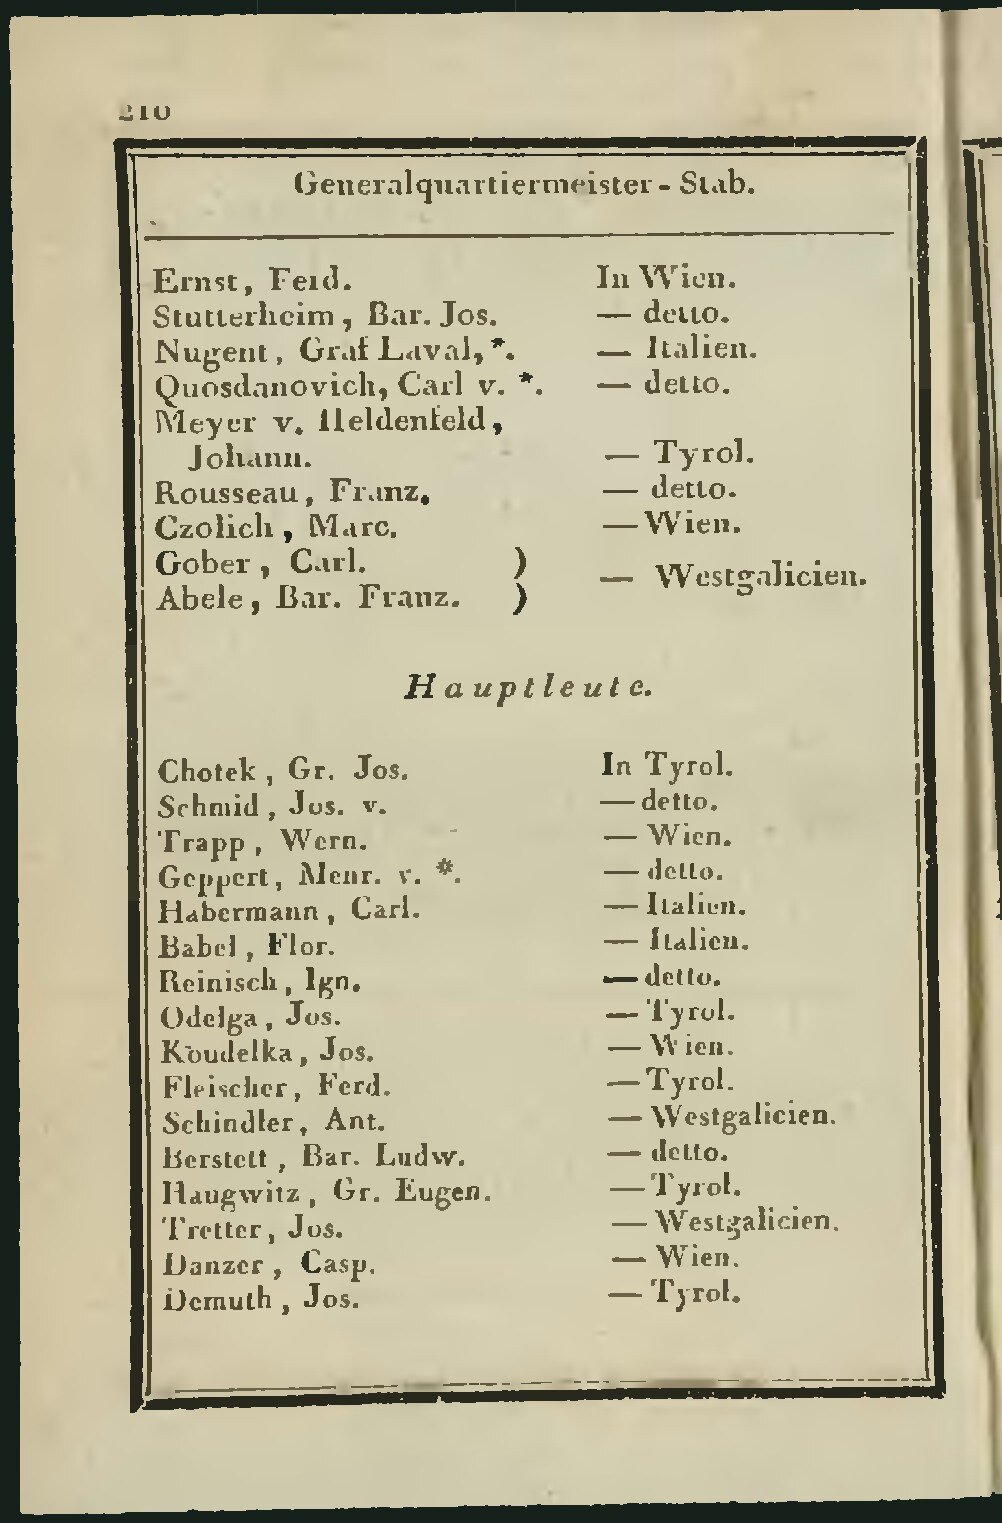 210
Generalquartiermeister-Stab.
Ernst, Ferd. In Wien.
Stutterheim, Bar. Jos. — detto.
Nugent, Graf Laval, *. — Italien.
Quosdanovich, Carl v. *. — detto.
Meyer v. Heldenfeld,
Johann. — Tyrol.
Rousseau, Franz. — detto.
Czolich, Marc. — Wien.
Gober, Carl. )
Abele, Bar. Franz. ) — Westgalicien.
Hauptleute.
Chotek, Gr. Jos. In Tyrol.
Schmid, Jos. v. — detto.
Trapp, Wern. — Wien.
Geppert, Menr. v. *. — detto.
Habermann, Carl. — Italien.
Babel, Flor. — Italien.
Reinisch, Ign. — detto.
Odelga, Jos. — Tyrol.
Koudelka, Jos. — Wien.
Fleischer, Ferd. — Tyrol.
Schindler, Ant. — Westgalicien.
Berstett, Bar. Ludw. — detto.
Haugwitz, Gr. Eugen. — Tyrol.
Tretter, Jos. — Westgalicien.
Danzer, Casp. — Wien.
Demuth, Jos. — Tyrol.